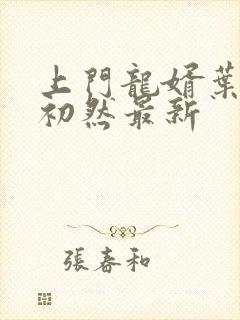 上門龍婿葉
初然最新
張春和